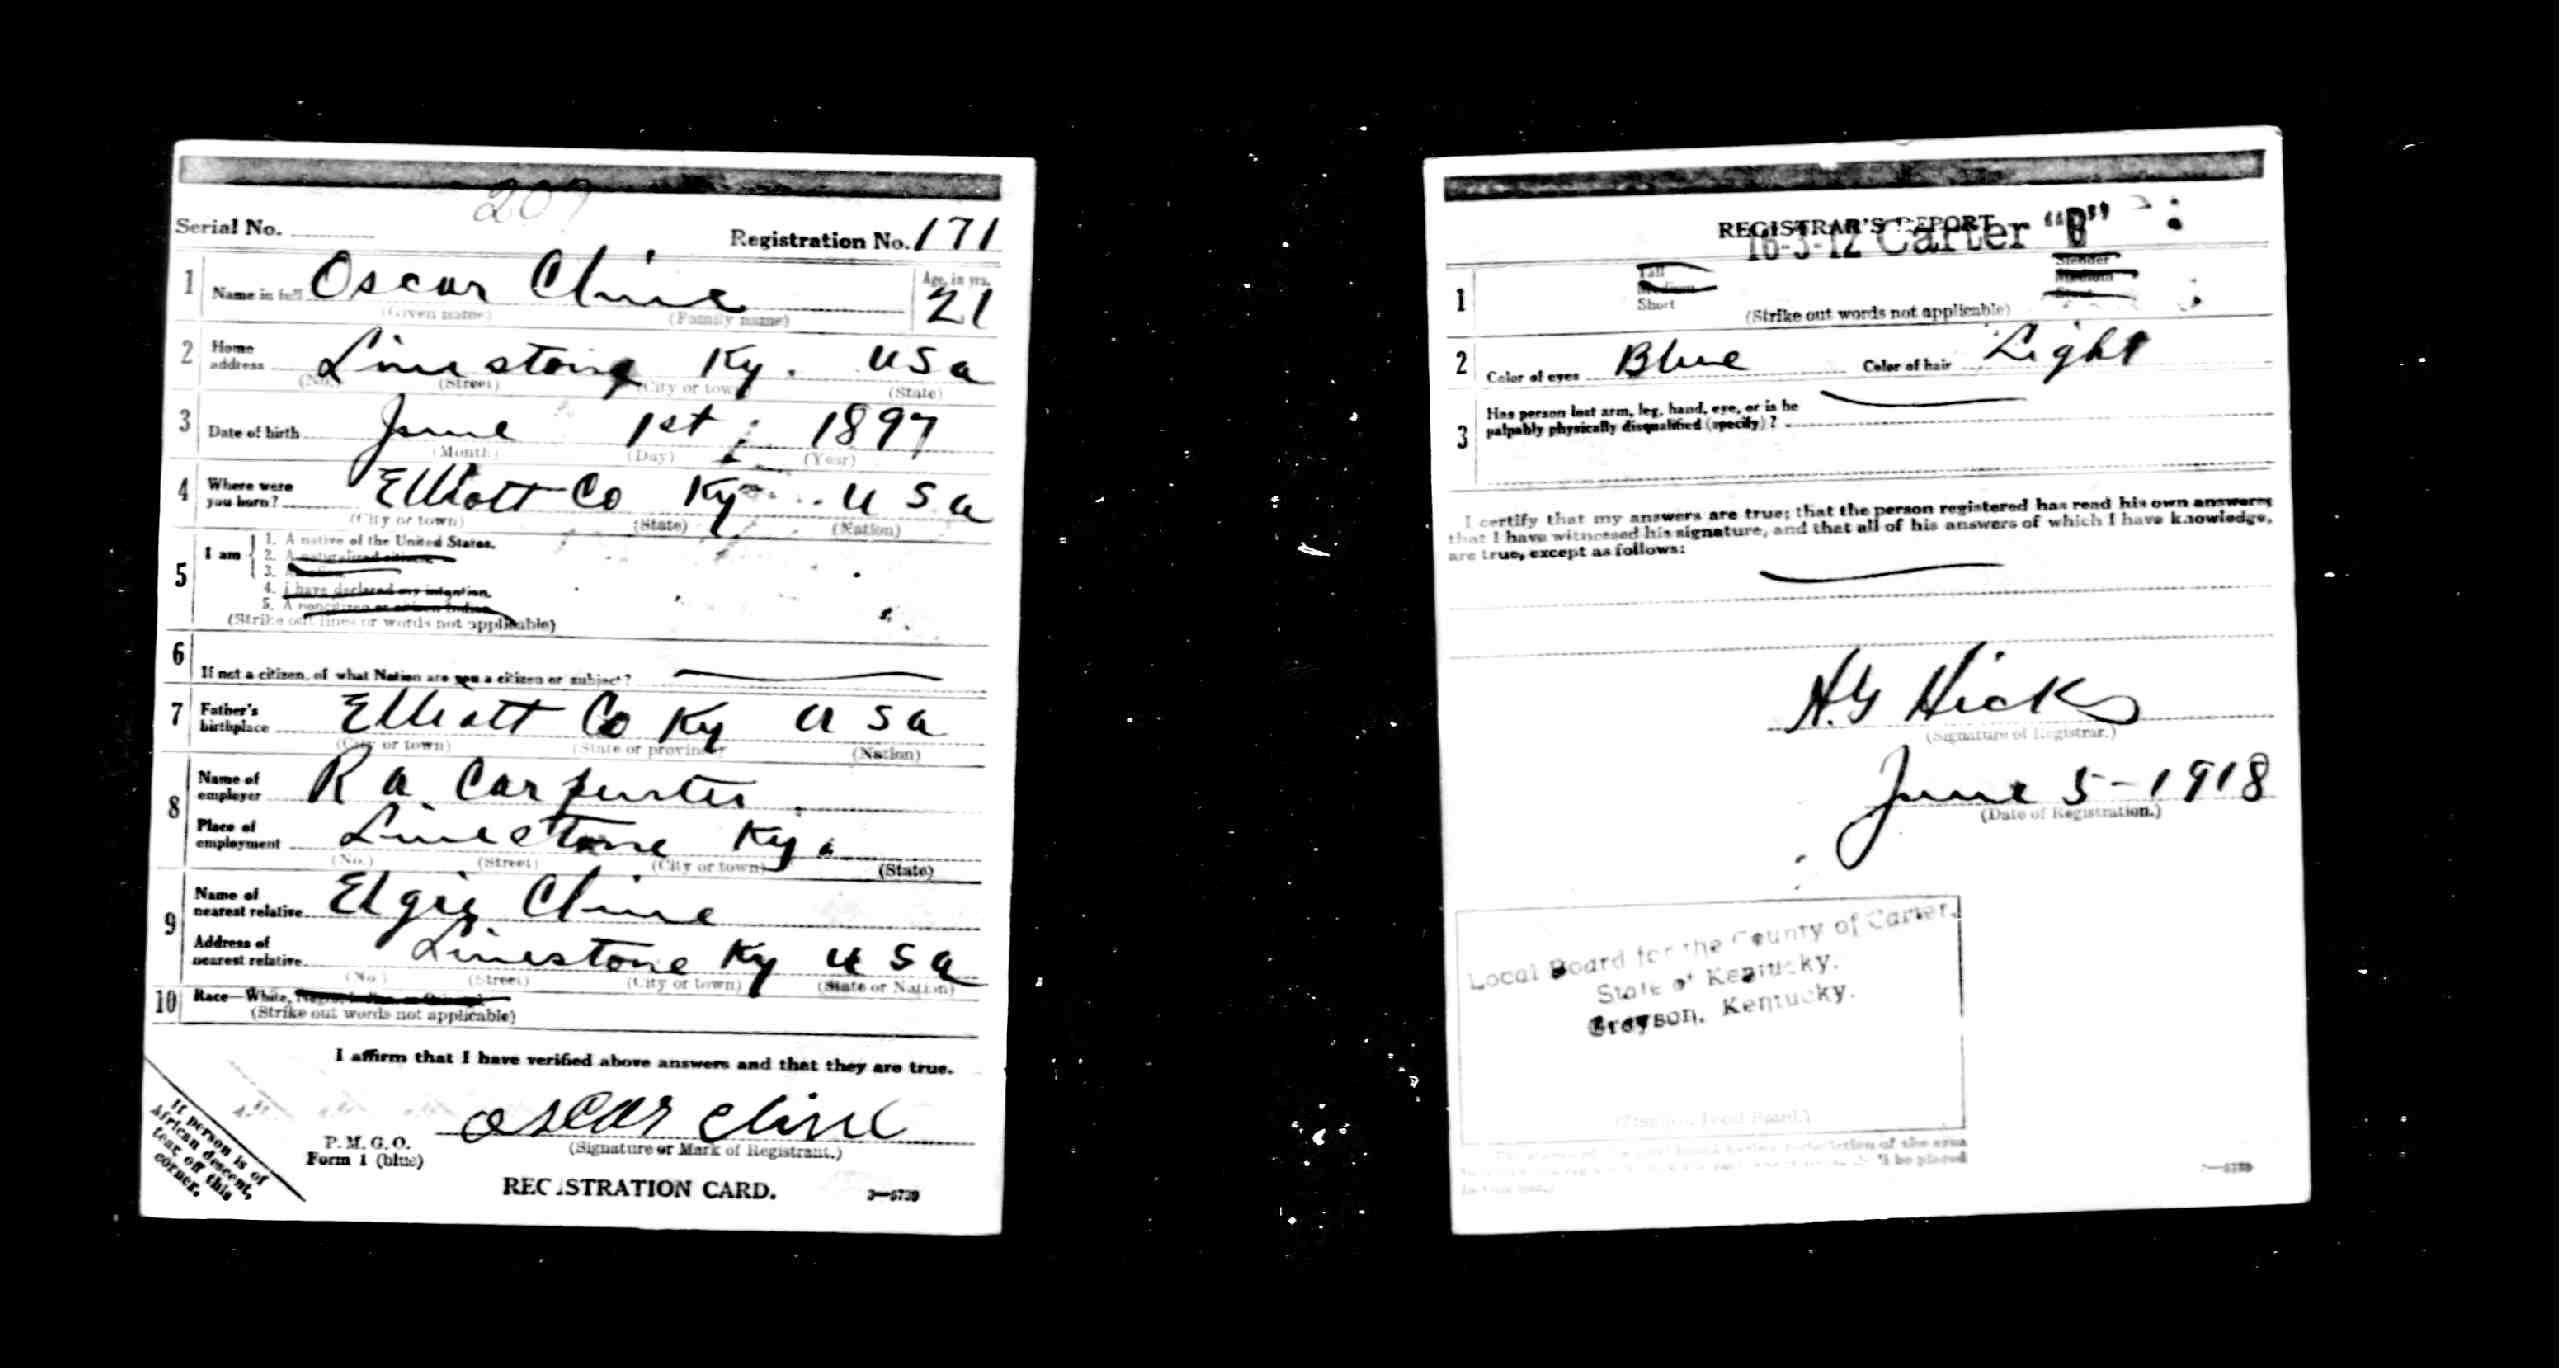 207
Serial No. Registration No. 171
1 Name in full Oscar Cline Age, in yrs. 21
(Given name) (Family name)
2 Home address Limestone Ky. USa
(No.) (Street) (City or town) (State)
3 Date of birth June 1st 1897
(Month) (Day) (Year)
4 Where were you born? Elliott Co Ky U S a
(City or town) (State) (Nation)
5 I am
1. A native of the United States.
2. A naturalized citizen.
3.
4. I have declared my intention.
5. A noncitizen or citizen Indian.
(Strike out lines or words not applicable)
6 If not a citizen, of what Nation are you a citizen or subject?
7 Father's birthplace Elliott Co Ky U S a
(City or town) (State or province) (Nation)
8 Name of employer R a Carpenter
Place of employment Limestone Ky.
(No.) (Street) (City or town) (State)
9 Name of nearest relative Elgie Cline
Address of nearest relative Limestone Ky U S a
(No.) (Street) (City or town) (State or Nation)
10 Race—White,
(Strike out words not applicable)
I affirm that I have verified above answers and that they are true.
If person is of
African descent,
tear off this
corner.
P. M. G. O.
Form 1 (blue)
Oscar Cline
(Signature or Mark of Registrant.)
REGISTRATION CARD. 3—6739
REGISTRAR'S REPORT
16-3-12 Carter "B"
1 Tall Slender
Medium Medium
Short Stout
(Strike out words not applicable)
2 Color of eyes Blue Color of hair Light
3 Has person lost arm, leg, hand, eye, or is he
palpably physically disqualified (specify)?
I certify that my answers are true; that the person registered has read his own answers;
that I have witnessed his signature, and that all of his answers of which I have knowledge,
are true, except as follows:
H.G Hicks
(Signature of Registrar.)
June 5-1918
(Date of Registration.)
Local Board for the County of Carter,
State of Kentucky.
Grayson, Kentucky.